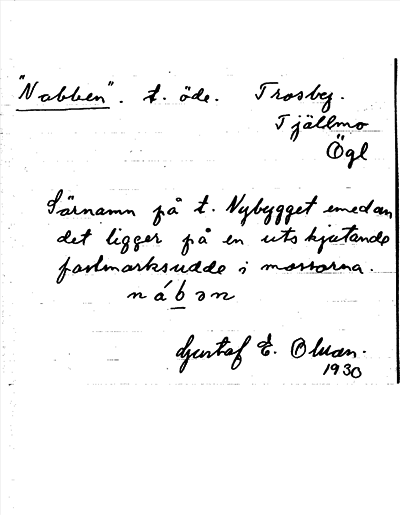 "Nabben". t. öde. Trosby.
Tjällmo
Ögl
Särnamn på t. Nybygget emedan
det ligger på en utskjutande
fastmarksudde i mossarna.
nábən
Gustaf E. Olsson.
1930